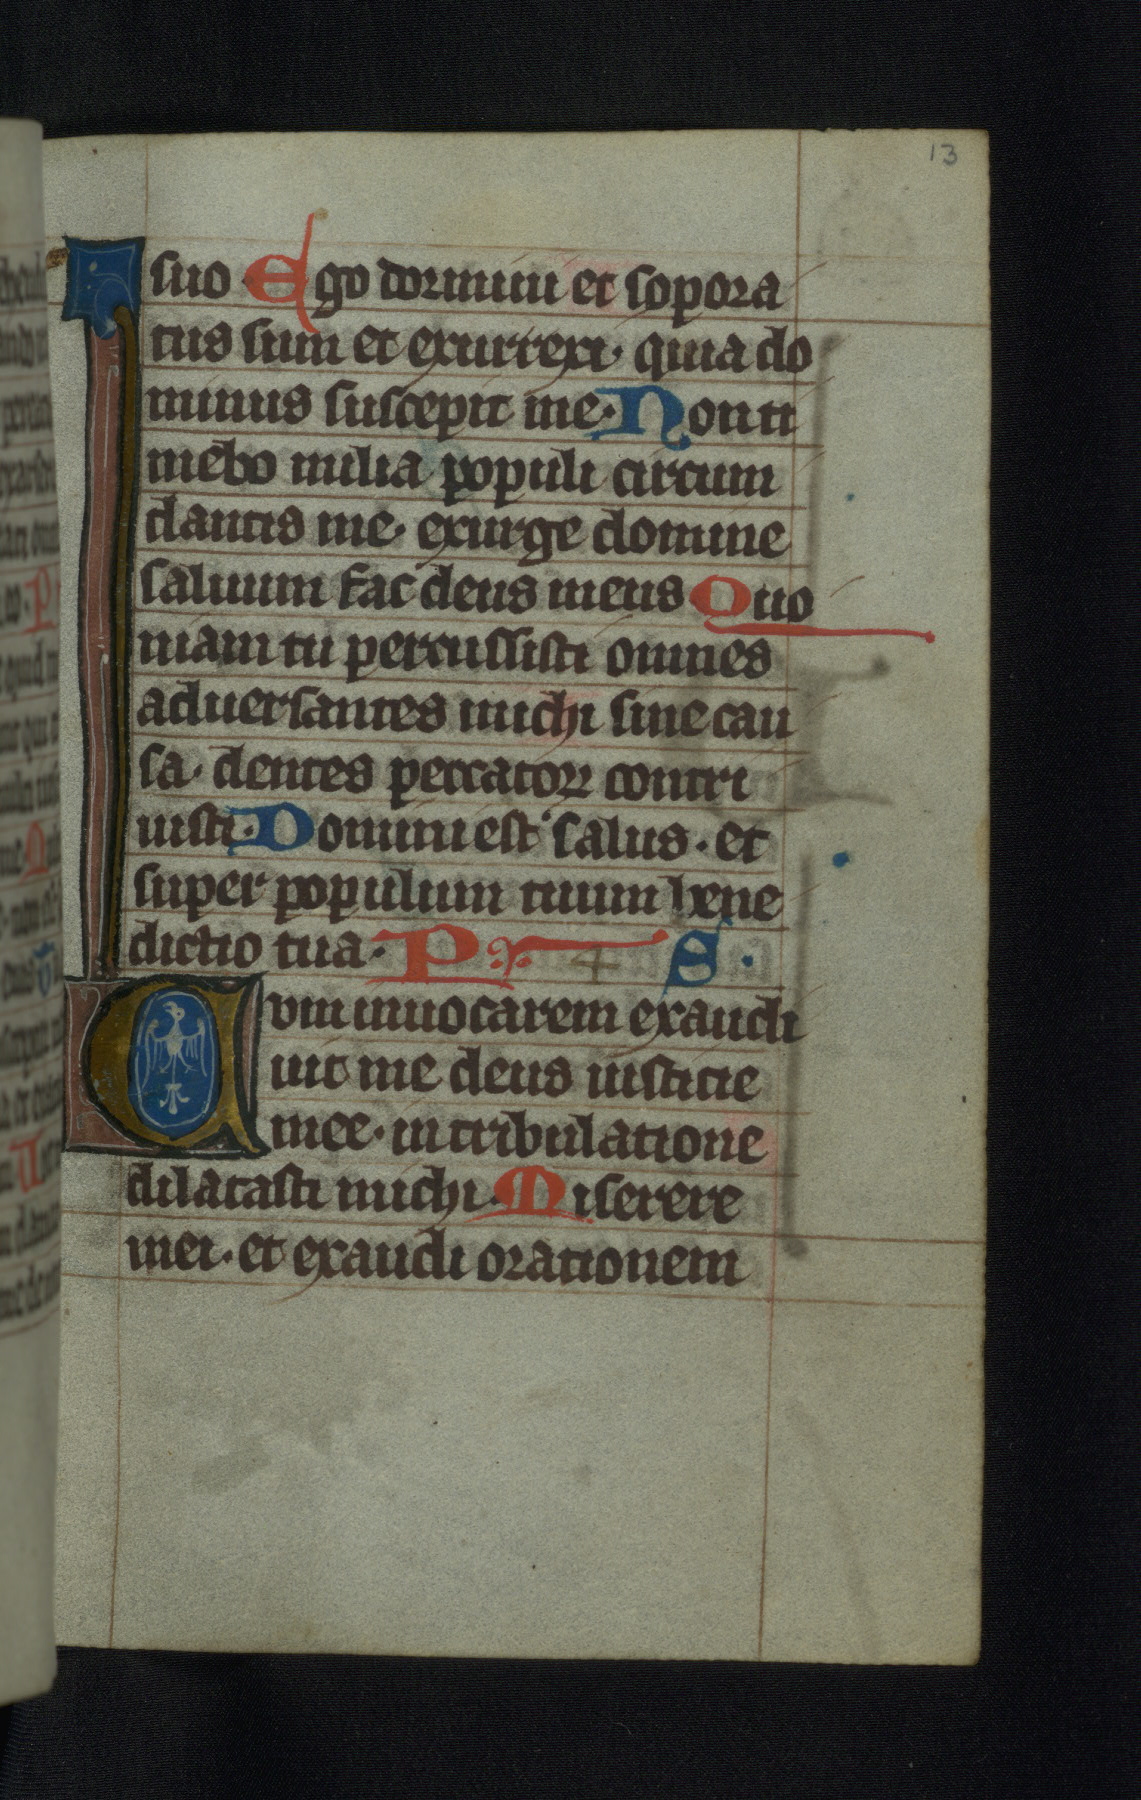 13
suo · Ego dormiui et sopora
tus sum et exurrexi · quia do
minus suscepit me · Non ti
mebo milia populi circum
dantis me · exurge domine
saluum fac deus meus Quo
niam tu percussisti omnes
aduersantes michi sine cau
sa · dentes peccatoꝝ contri
uisti · Domini est salus · et
super populum tuum bene
dictio tua · P 4 S ·
Cum inuocarem exaudi
uit me deus iusticie
mee · in tribulatione
dilatasti michi · Miserere
mei · et exaudi orationem